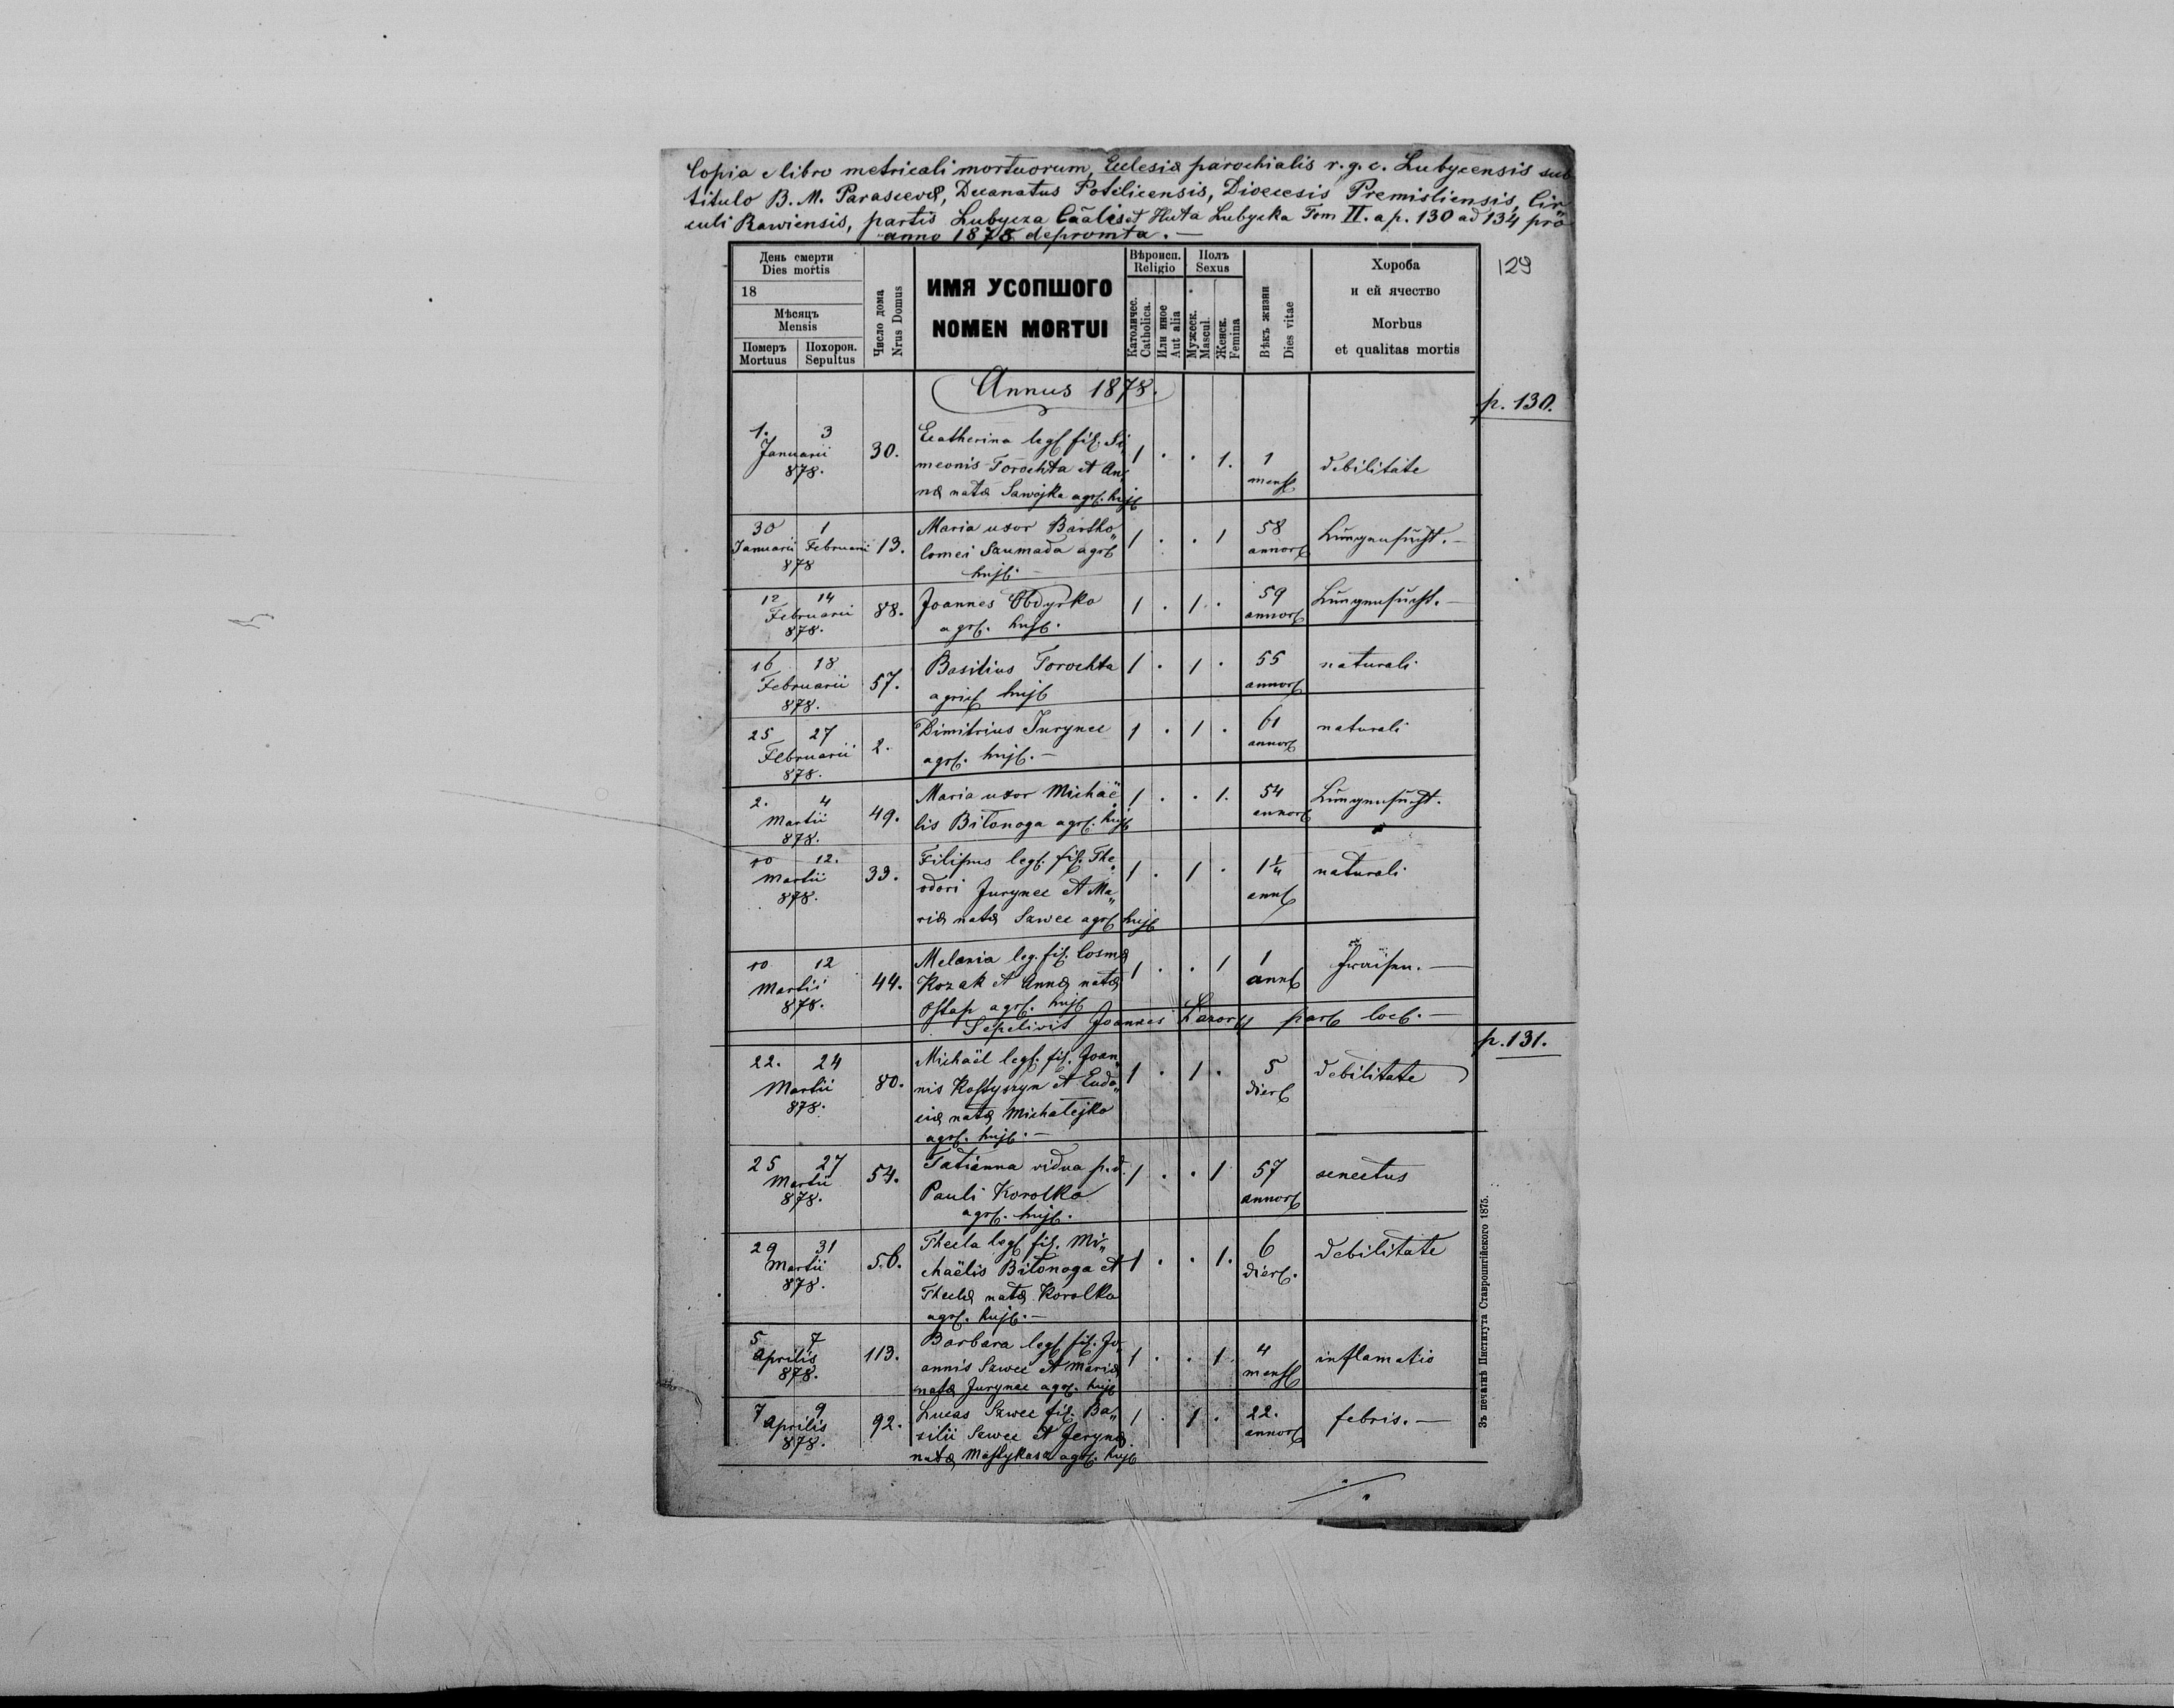 Copia e libro metricali mortuorum, Ecclesiæ parochialis r. g. c. Lubycensis sub
titulo B. M. Parascevæ, Decanatus Potelicensis, Dioecesis Premisliensis, Cir„
culi Rawiensis, partis Lubycza Cãalis et Huta Lubycka Tom II. a p. 130 ad 134 pro
anno 1878 depromta. —
129
День смерти
Dies mortis
18
Мѣсяцъ
Mensis
Померъ
Mortuus
Похорон.
Sepultus
Число дома
Nrus Domus
ИМЯ УСОПШОГО
NOMEN MORTUI
Вѣроисп.
Religio
Католичес.
Catholica.
Или иное
Aut alia
Полъ
Sexus
Мужеск.
Mascul.
Женск.
Femina
Вѣкъ жизни
Dies vitae
Хороба
и ей ячество
Morbus
et qualitas mortis
Annus 1878.
p. 130.
1. 3 Januarii 878. 30.
Ecatherina legſ fiſ. Si„
meonis Torochta et An„
næ natæ Sawojka agrſ. hujſ
1 . . 1. 1 menſ debilitate
30 Januarii 1 Februarii 878 13.
Maria uxor Bartho„
lomei Szumada agrſ
hujſ. —
1 . . 1 58 annorſ Lungensucht. —
12 14 Februarii 878. 88.
Joannes Obdyrko
agrſ. hujſ.
1 . 1 . 59 annorſ Lungensucht. —
16 18 Februarii 878. 57.
Basilius Torochta
agricſ hujſ
1 . 1 . 55 annorſ naturali
25 27 Februarii 878. 2.
Dimitrius Jurynec
agrſ. hujſ. —
1 . 1 . 61 annorſ naturali
2. 4 Martii 878. 49.
Maria uxor Michaë„
lis Biłonoga agrſ. hujſ
1 . . 1. 54 annorſ Lungensucht.
10 12. Martii 878. 33.
Filipus legſ. fiſ. The„
odori Jurynec et Ma„
riæ natæ Szwec agrſ hujſ
1 . 1 . 1¼ annſ naturali
10 12 Martii 878. 44.
Melania leg. fiſ. Cosmæ
Kozak et Annæ natæ
Ostap agrſ. hujſ
1 . . 1 1 annſ Fraisen. —
Sepelivit Joannes parſ locſ. —
p. 131.
22. 24 Martii 878. 80.
Michaël legſ. fiſ. Joan„
nis Kostyszyn et Eudo„
ciæ natæ Michałejko
agrſ. hujſ. —
1 . 1 . 5 dierſ debilitate
25 27 Martii 878. 54.
Tatianna vidua p. d.
Pauli Korolko
agrſ. hujſ.
1 . . 1 57 annorſ senectus
29 31 Martii 878. 56.
Thecla legſ fiſ. Mi„
chaëlis Biłonoga et
Theclæ natæ Korolko
agrſ. hujſ. —
1 . . 1. 6 dierſ. debilitate
5 7 Aprilis 878. 113.
Barbara legſ fiſ. Jo„
annis Szwec et Mariæ
natæ Jurynec agrſ. hujſ
1 . . 1. 4 menſ inflamatio
7 9 Aprilis 878. 92.
Lucas Szwec fiſ. Ba„
silii Szwec et Jerynæ
natæ agrſ. hujſ
1 . 1 . 22. annorſ febris. —
Зъ печатнѣ Института Ставропигійского 1875.